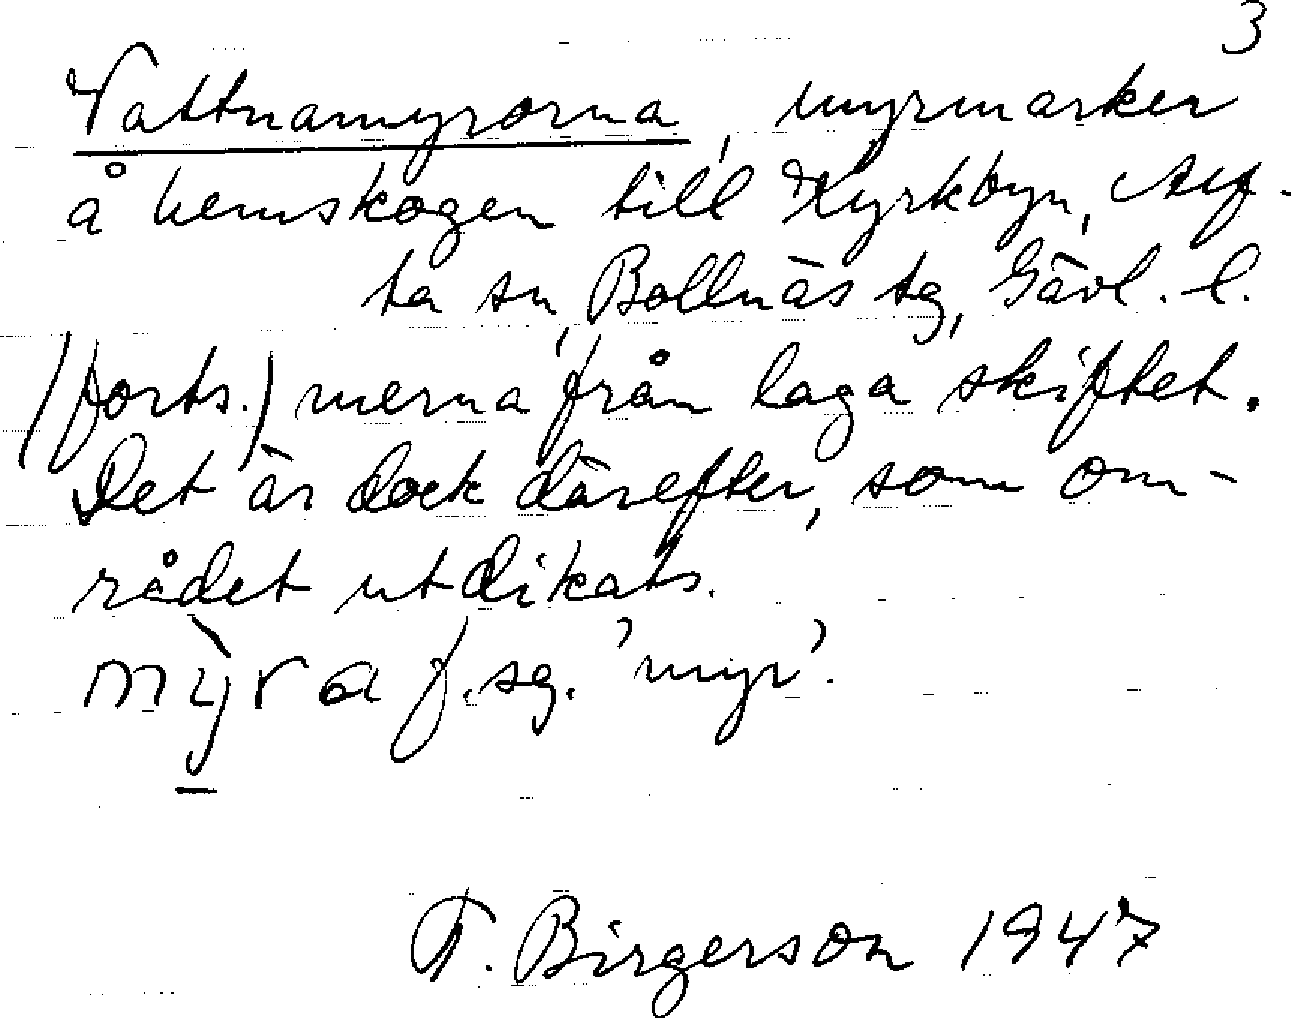 3
Vattnamyrorna, myrmarker
å hemskogen till Kyrkbyn, Alf-
ta sn, Bollnäs tg, Gävl. l.
(forts.) merna från laga skiftet.
Det är dock därefter, som om-
rådet utdikats.
mỳra f. sg. 'myr'.
F. Birgerson 1947